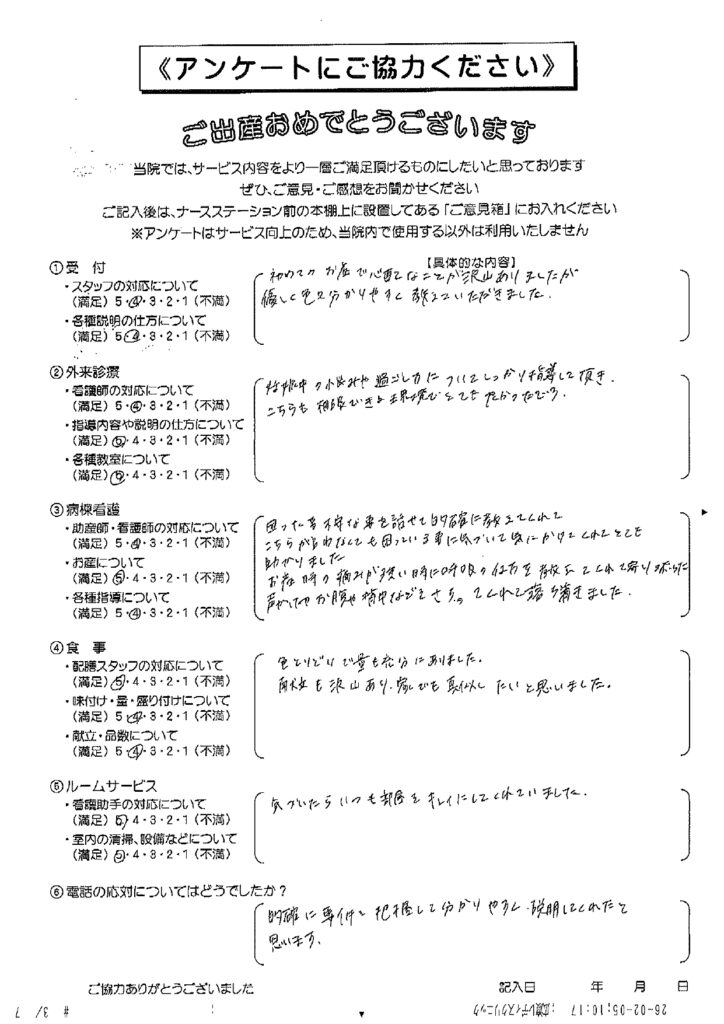 《アンケートにご協力ください》
ご出産おめでとうございます
当院では、サービス内容をより一層ご満足頂けるものにしたいと思っております
ぜひ、ご意見・ご感想をお聞かせください
ご記入後は、ナースステーション前の本棚上に設置してある「ご意見箱」にお入れください
※アンケートはサービス向上のため、当院内で使用する以外は利用いたしません
【具体的な内容】
①受 付
・スタッフの対応について
(満足) 5・4・3・2・1 (不満)
・各種説明の仕方について
(満足) 5・4・3・2・1 (不満)
初めての お産で心配なことが沢山ありましたが
優しく 分かりやすく 教えていただきました.
②外来診療
・看護師の対応について
(満足) 5・4・3・2・1 (不満)
・指導内容や説明の仕方について
(満足) 5・4・3・2・1 (不満)
・各種教室について
(満足) 5・4・3・2・1 (不満)
妊娠中の悩みや 過ごし方に ついてしっかり指導して頂き.
こちらも 相談できる 環境で とても
③病棟看護
・助産師・看護師の対応について
(満足) 5・4・3・2・1 (不満)
・お産について
(満足) 5・4・3・2・1 (不満)
・各種指導について
(満足) 5・4・3・2・1 (不満)
困った事 な事を話せて的確に教えてくれて
こちらが言わなくても困っている事に気づいて気にかけてくれとても
助かりました
お産時の痛みが強い時に呼吸の仕方を教えてくれて
声かけや お腹や背中などをさすってくれて落ち着きました.
④食 事
・配膳スタッフの対応について
(満足) 5・4・3・2・1 (不満)
・味付け・量・盛り付けについて
(満足) 5・4・3・2・1 (不満)
・献立・品数について
(満足) 5・4・3・2・1 (不満)
色とりどりで量も充分にありました.
献立も沢山あり.家でも真似したいと思いました.
⑤ルームサービス
・看護助手の対応について
(満足) 5・4・3・2・1 (不満)
・室内の清掃、設備などについて
(満足) 5・4・3・2・1 (不満)
気づいたらいつも部屋をキレイにしてくれていました.
⑥電話の応対についてはどうでしたか?
的確に 事件を 把握して分かりやすく説明してくれたと
思います.
ご協力ありがとうございました
記入日 年 月 日
26-02-05;10:17 ;広瀬レディスクリニック
# 3/ 7